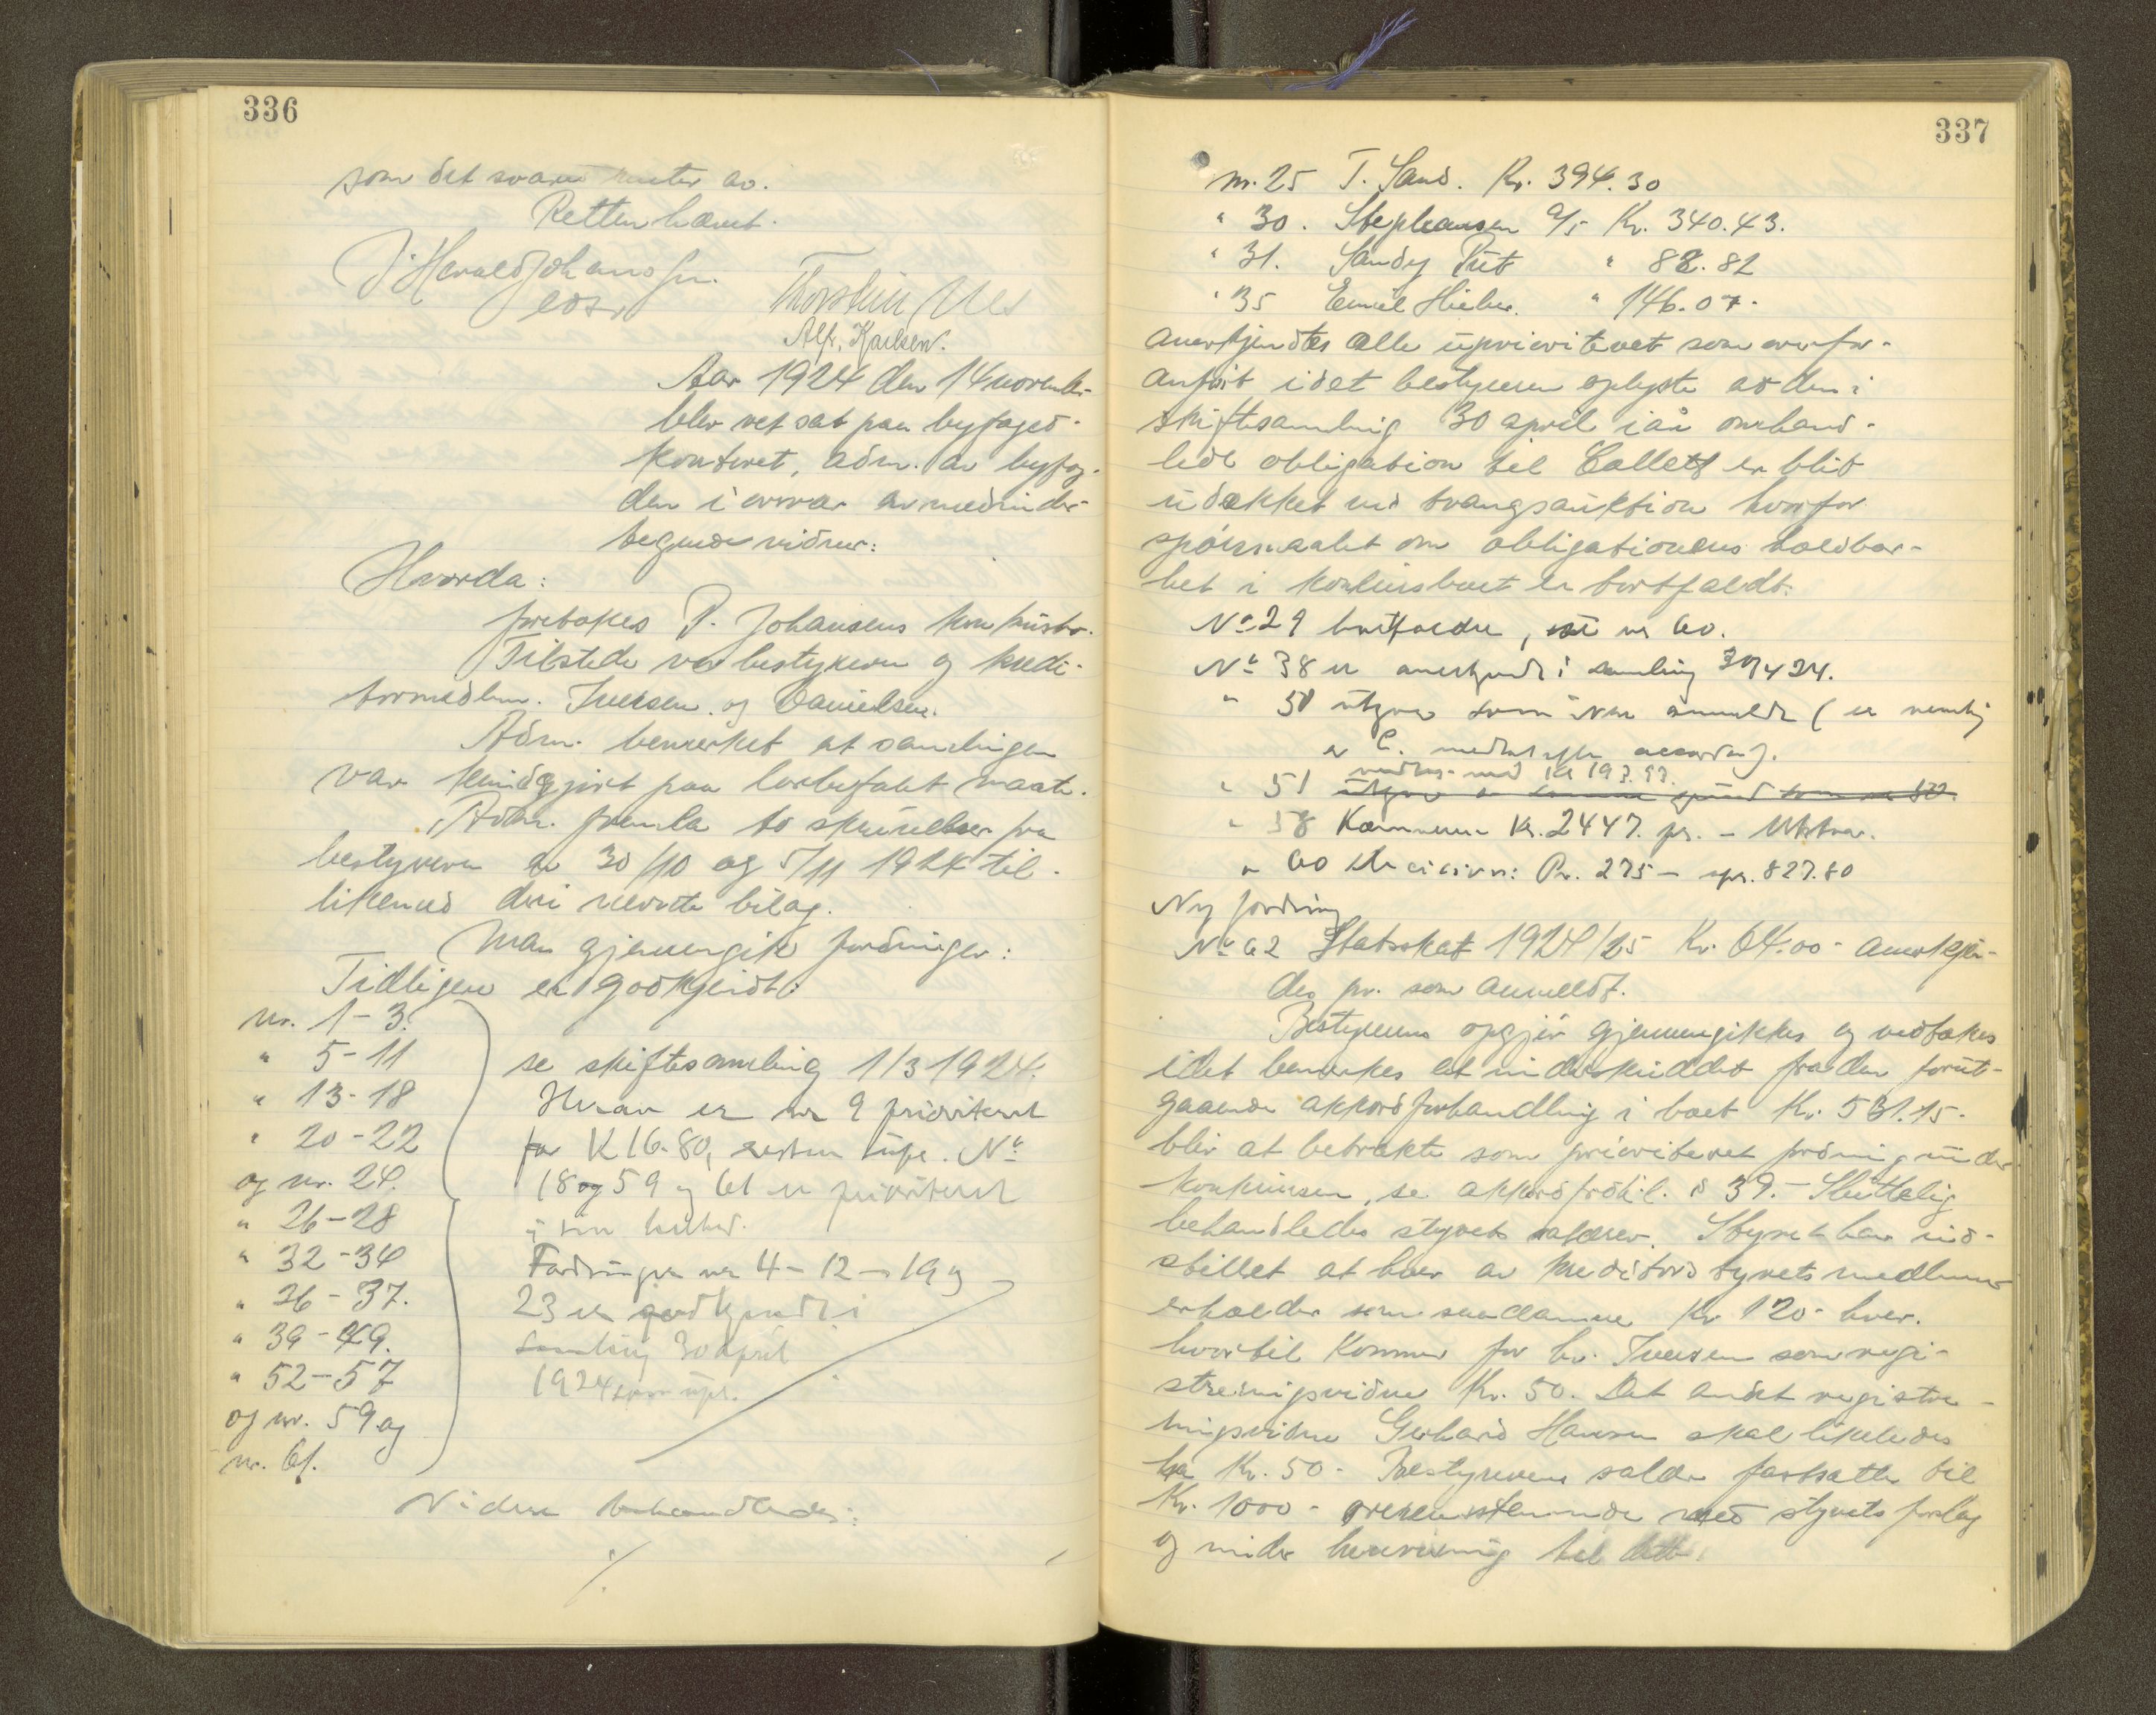 336
som det svares renter av.
Retten hævet.
J. Harald Johansen
Thorstein Næs
Alfr. Karlsen.
Aar 1924 den 14 novembr.
blev ret sat paa byfoged-
kontoret, adm. av byfog-
den i overvær av medunder-
tegnede vidner:
Hvorda:
foretokes P. Johansens konkursbo.
Tilstede var bestyreren og kredi-
tormedlem. Iversen og Danielsen.
Adm. bemerket at samlingen
var kundgjort paa lovbefalet maate.
Adm. fremla to skrivelser fra
bestyreren av 30/10 og 5/11 1924 til-
likemed deri nævnte bilag.
Man gjennemgik fordringer:
Tidligere er godkjendt:
nr. 1-3.
" 5-11
" 13-18
" 20-22
og nr. 24.
" 26-28
" 32-34
" 36-37.
" 39-49.
" 52-57
og nr. 59 og
nr. 61.
se skiftesamling 1/3 1924.
Herav er nr 9 prioritert
for K 16.80, resten upr. No
18 og 59 og 61 er prioritert
i sin helhet.
Fordringer nr 4-12-19 og
23 er godkjendt i
samling 30 april
1924 som upr.
Videre behandledes:
./.
337
nr. 25 T. Sand. Kr. 394.30
" 30. Stephansen A/S Kr. 340.43.
" 31. Sandy Put " 82.82
" 35 Emil Hieber. " 146.07.
anerkjendtes alle uprioritert som ovenfor
anført idet bestyreren oplyste at den i
skiftesamling 30 april iaar omhand-
lede obligation til Collett er blit
udækket ved tvangsauktion hvorfor
spørsmaalet om obligationens holdbar-
het i konkursboet er bortfaldt.
No 29 bortfalder, se nr 60.
No 38 er anerkjendt i samling 30/4 24.
" 50 utgaar som ikke anmeldt ( er nemlig
" 51
" 58 Kæmneren Kr. 2447. pr. -
" 60 Kr. 275 - upr. 827.80
Ny fordring
No 62 Statsskat 1924/25 Kr. 64.00 - anerkjen-
des pr. som anmeldt.
Bestyrerens opgjør gjennemgikkes og vedtokes
idet bemerkes at underskuddet fra den forut-
gaaende akkordforhandling i boet Kr. 561.15.
blir at betrakte som prioritert fordring under
konkursen, se akkordfrdl. § 39. - Sluttelig
behandledes styrets salærer. Styret har ind-
stillet at hver av kreditorstyrets medlemmer
erholder som saadanne Kr. 120 - hver.
hvortil kommer for hr. Iversen som regi-
streringsvidne Kr. 50. Det andet registre-
ringsvidne Gerhard Hansen skal likeledes
ha Kr. 50 - Bestyrerens salær fastsattes til
Kr. 1000 - overensstemmende med styrets forslag
og under henvisning til dette